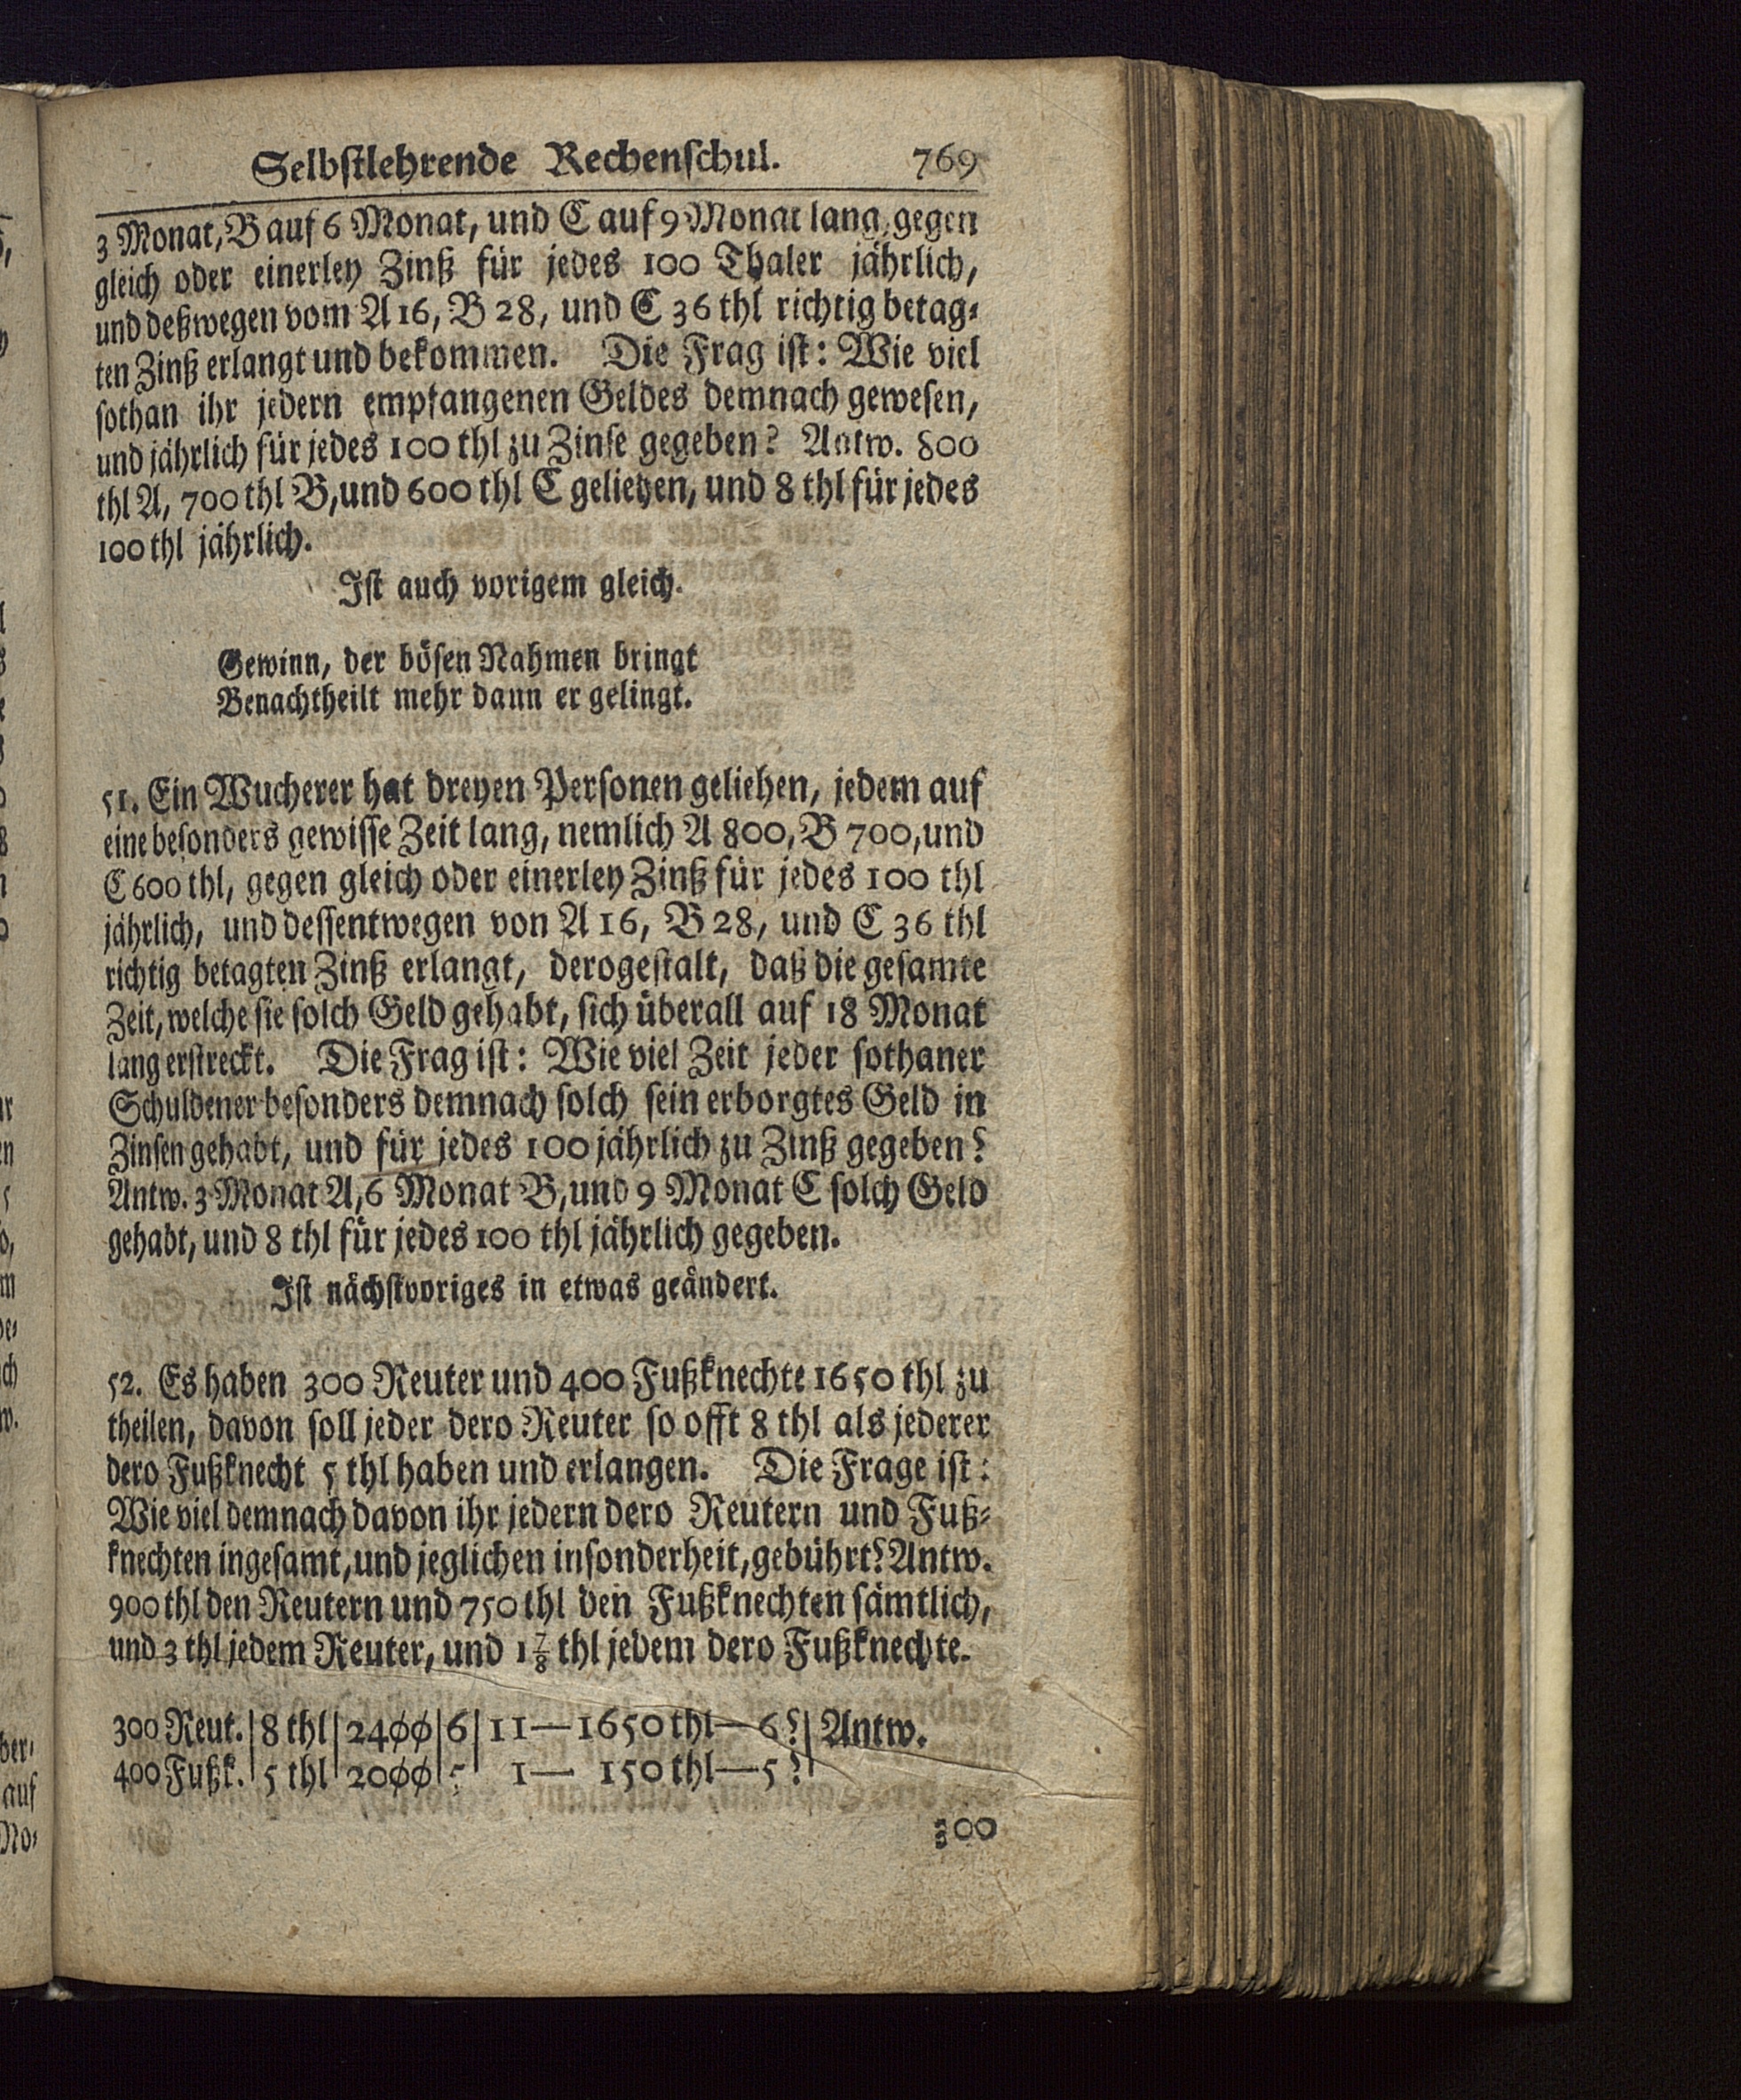 Selbstlehrende Rechenschul. 769
3 Monat, B auf 6 Monat, und C auf 9 Monat lang, gegen
gleich oder einerley Zinß für jedes 100 Thaler jährlich,
und deßwegen vom A 16, B 28, und C 36 thl richtig betag-
ten Zinß erlangt und bekommen. Die Frag ist: Wie viel
sothan ihr jedern empfangenen Geldes demnach gewesen,
und jährlich für jedes 100 thl zu Zinse gegeben? Antw. 800
thl A, 700 thl B, und 600 thl C geliehen, und 8 thl für jedes
100 thl jährlich.
Ist auch vorigem gleich.
Gewinn, der bösen Nahmen bringt
Benachtheilt mehr dann er gelingt.
51. Ein Wucherer hat dreyen Personen geliehen, jedem auf
eine besonders gewisse Zeit lang, nemlich A 800, B 700, und
C 600 thl, gegen gleich oder einerley Zinß für jedes 100 thl
jährlich, und dessentwegen von A 16, B 28, und C 36 thl
richtig betagten Zinß erlangt, derogestalt, daß die gesamte
Zeit, welche sie solch Geld gehabt, sich überall auf 18 Monat
lang erstreckt. Die Frag ist: Wie viel Zeit jeder sothaner
Schuldener besonders demnach solch sein erborgtes Geld in
Zinsen gehabt, und für jedes 100 jährlich zu Zinß gegeben?
Antw. 3 Monat A, 6 Monat B, und 9 Monat C solch Geld
gehabt, und 8 thl für jedes 100 thl jährlich gegeben.
Ist nächstvoriges in etwas geändert.
52. Es haben 300 Reuter und 400 Fußknechte 1650 thl zu
theilen, davon soll jeder dero Reuter so offt 8 thl als jederer
dero Fußknecht 5 thl haben und erlangen. Die Frage ist:
Wie viel demnach davon ihr jedern dero Reutern und Fuß-
knechten ingesamt, und jeglichen insonderheit, gebührt? Antw.
900 thl den Reutern und 750 thl den Fußknechten sämtlich,
und 3 thl jedem Reuter, und 1 7/8 thl jedem dero Fußknechte.
300 Reut. | 8 thl | 24φφ | 6 | 11—1650 thl—6? | Antw.
400 Fußk. | 5 thl | 20φφ | 5 | 1— 150 thl—5? |
300